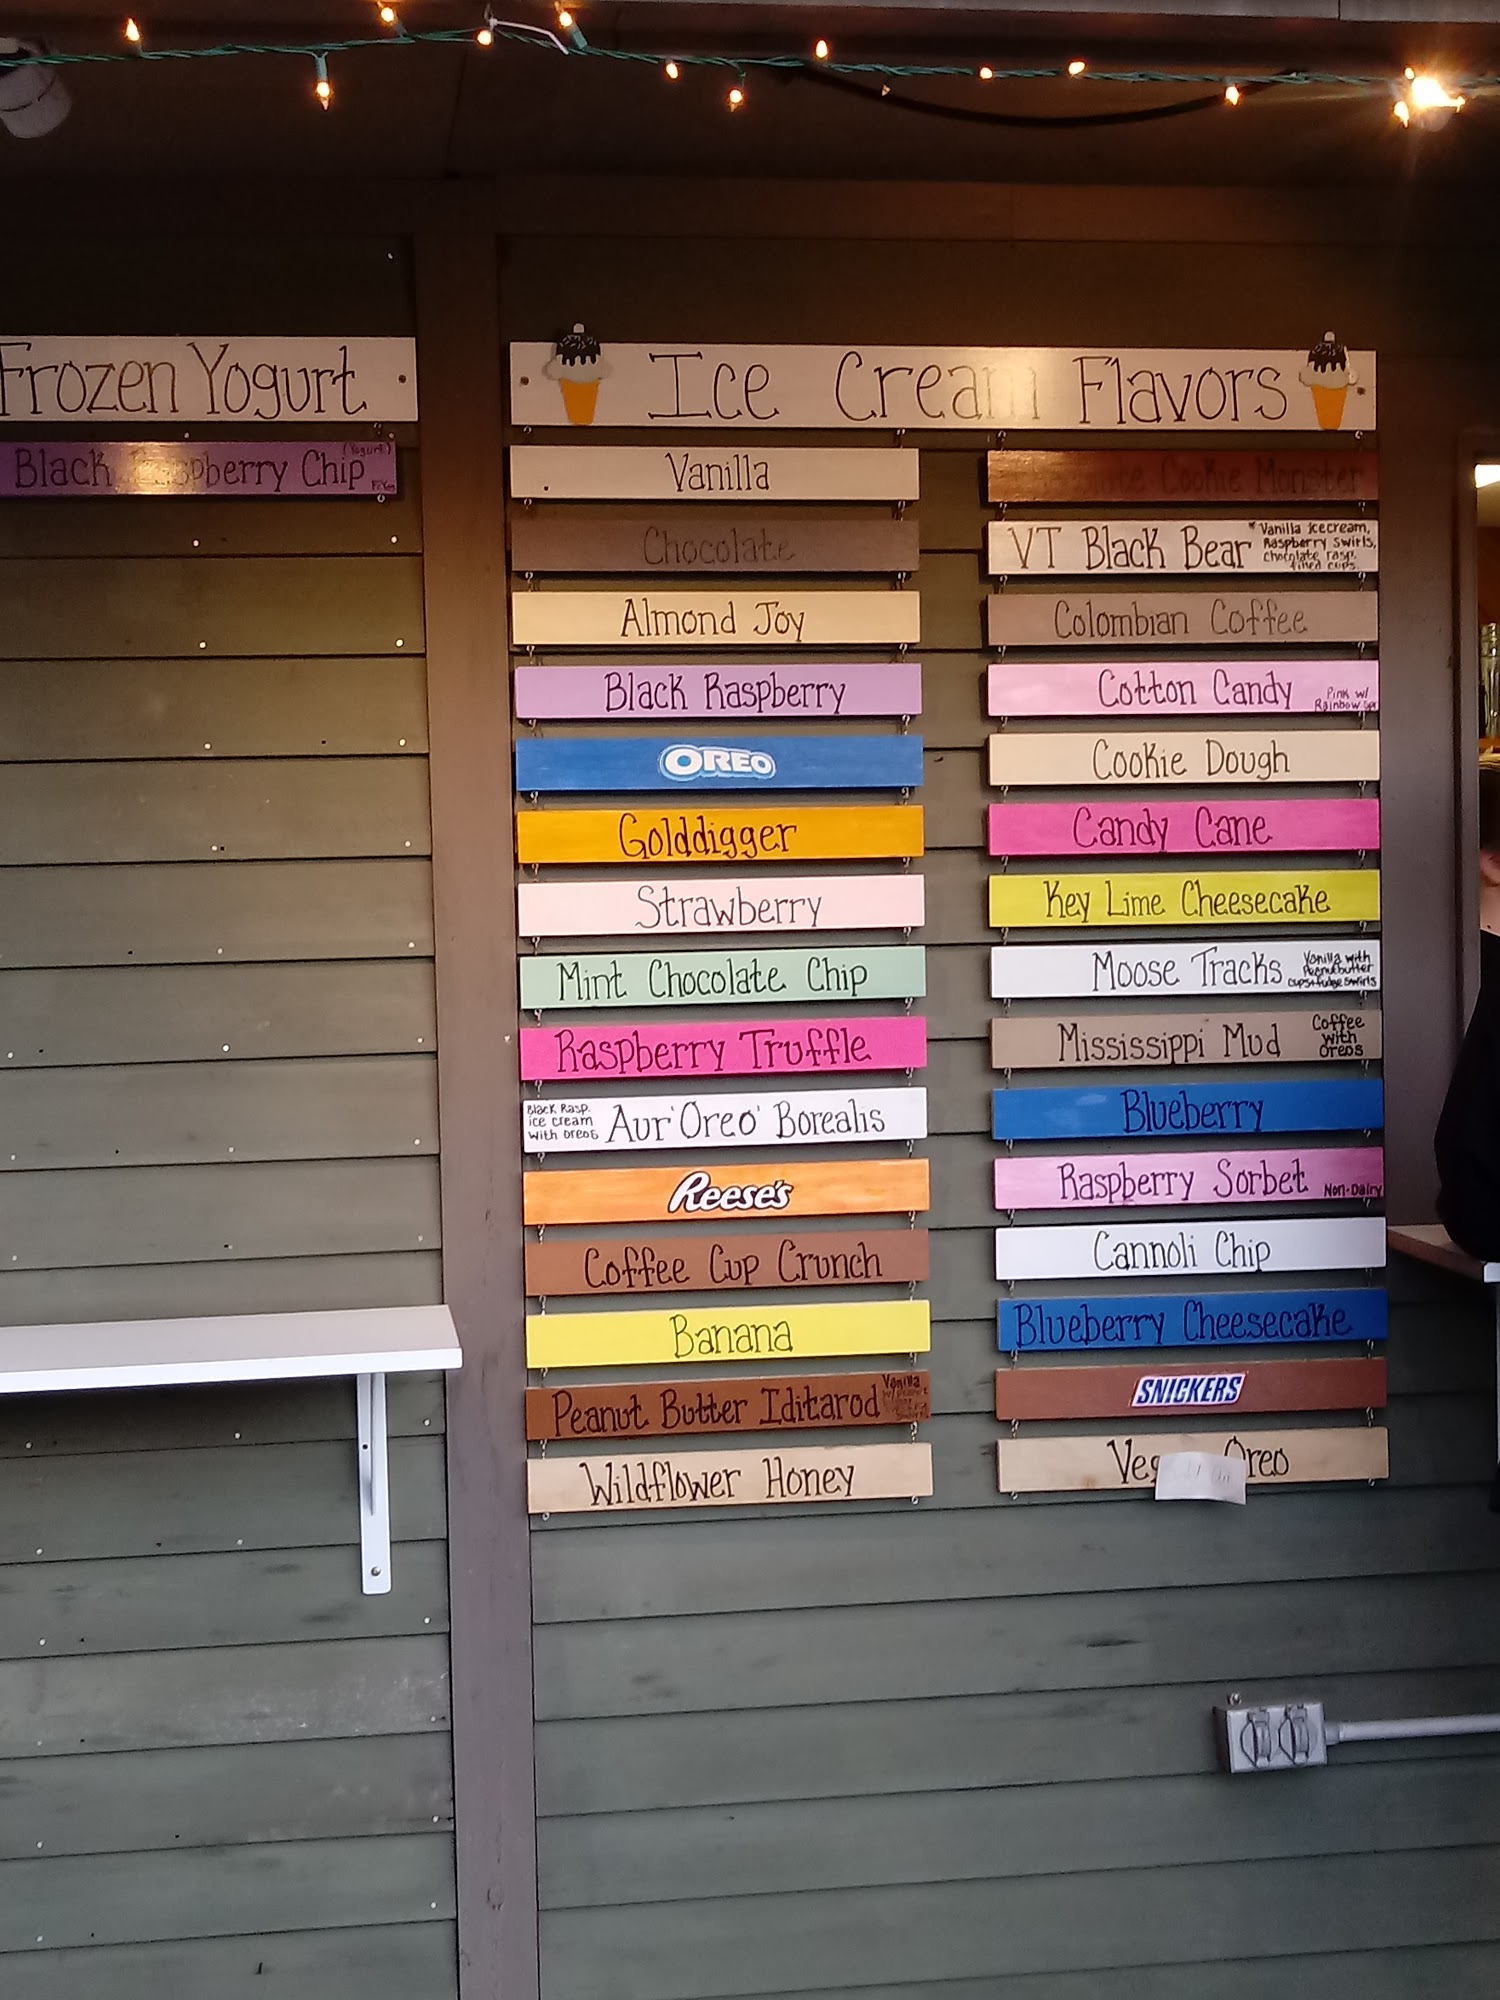 Frozen Yogurt
Black Raspberry Chip (Yogurt)
Ice Cream Flavors
Vanilla
Chocolate
Almond Joy
Black Raspberry
OREO
Golddigger
Strawberry
Mint Chocolate Chip
Raspberry Truffle
Black Rasp.
ice cream
with oreos
Aur'Oreo' Borealis
Reese's
Coffee Cup Crunch
Banana
Peanut Butter Iditarod
Vanilla
Wildflower Honey
Cookie Monster
VT Black Bear
*Vanilla icecream,
Raspberry swirls,
chocolate rasp.
filled cups.
Colombian Coffee
Cotton Candy
Pink w/
Rainbow
Cookie Dough
Candy Cane
Key Lime Cheesecake
Moose Tracks
Vanilla with
Peanutbutter
cups+fudge swirls
Mississippi Mud
Coffee
with
Oreos
Blueberry
Raspberry Sorbet Non-Dairy
Cannoli Chip
Blueberry Cheesecake
SNICKERS
Oreo